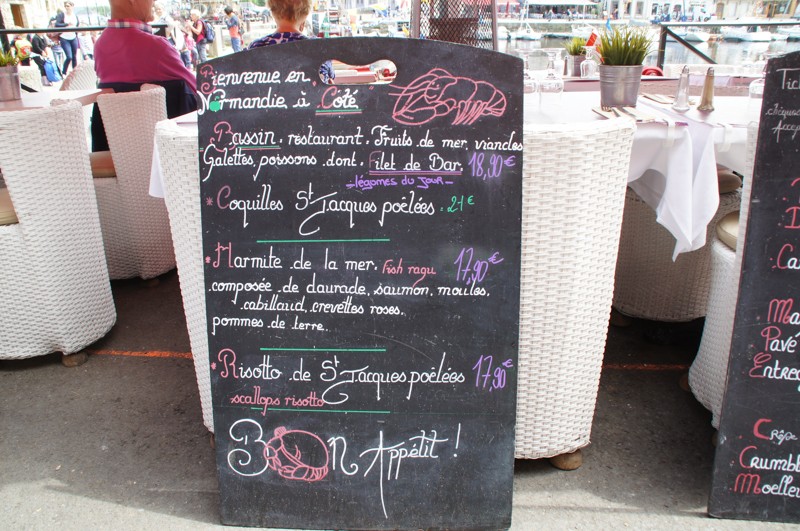 Bienvenue en
Normandie à Côté
Bassin restaurant. Fruits de mer, viandes
Galettes, poissons dont Filet de Bar 18,90€
légumes du jour
* Coquilles St Jacques poêlées . 21€
. Marmite de la mer. Fish ragu 17,90€
composée de daurade, saumon, moules,
cabillaud, crevettes roses.
pommes de terre.
. Risotto de St Jacques poêlées 17,90€
scallops risotto
Bon Appétit !
Ti
chèques
Accep
. D
. Ca
. Ma
. Pavé
. Entrec
. Crêpe
. Crumbl
. Moelleu